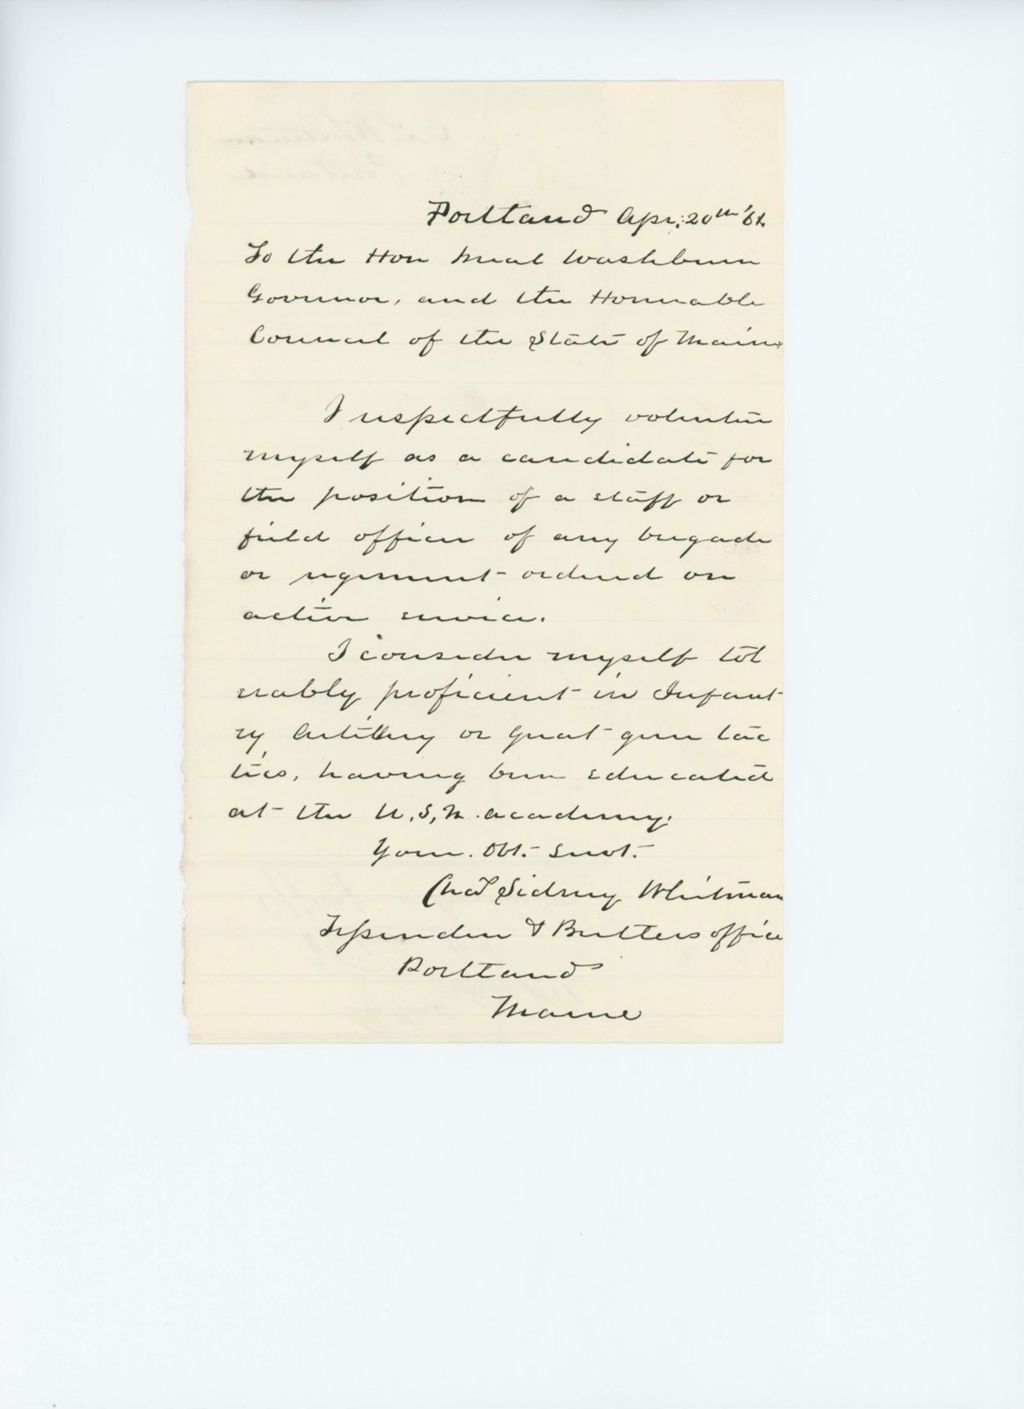 Portland Apr. 20th '61
To the Hon Israel Washburn
Governor, and the Honorable
Council of the State of Maine
I respectfully volunteer
myself as a candidate for
the position of a staff or
field officer of any brigade
or regiment ordered on
active service.
I consider myself tol
erably proficient in Infant
ry Artillery or great gun tac
tics, having been educated
at the U.S.N. academy.
Your. Obt. Servt.
Chas Sidney Whitman
Fessenden & Butlers office
Portland
Maine